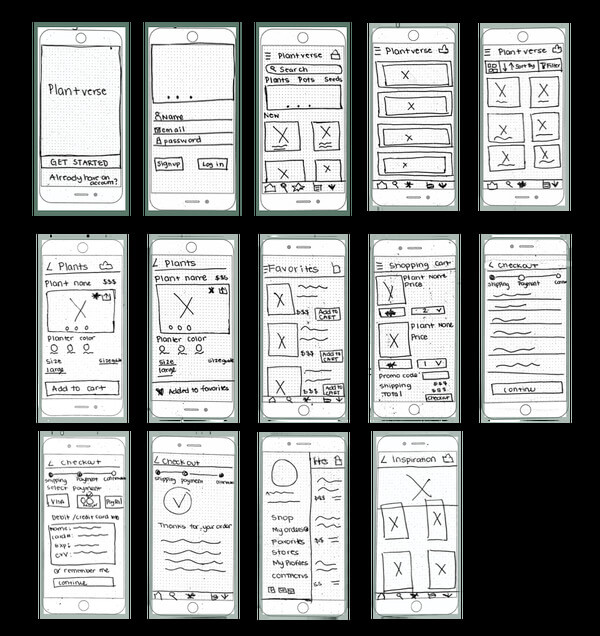 Plantverse
GET STARTED
Already have an
account?
Name
email
password
Signup
Log in
Plantverse
Search
Plants Pots Seeds
New
Plantverse
Plantverse
Sort By
Filter
Plants
Plant name $$$
Planter color
size
large
Add to cart
Plants
Plant name $$$
Planter color
Size
large
Added to favorites
Favorites
$$$ Add to
CART
$$$ Add to
CART
$$$ Add to
CART
Shopping Cart
Plant Name
Price
2
Plant Name
Price
1
Promo code
shipping $$$
Total $$$
Checkout
Checkout
shipping Payment
Checkout
shipping Payment
select payment
VISA
PayPal
Debit /credit card
Name:
card#:
Exp:
CVV:
or remember me
continue
Checkout
shipping payment
Thanks for your order
Shop
My orders
Favorites
Stores
My Profiles
contacts
$$$
Inspiration